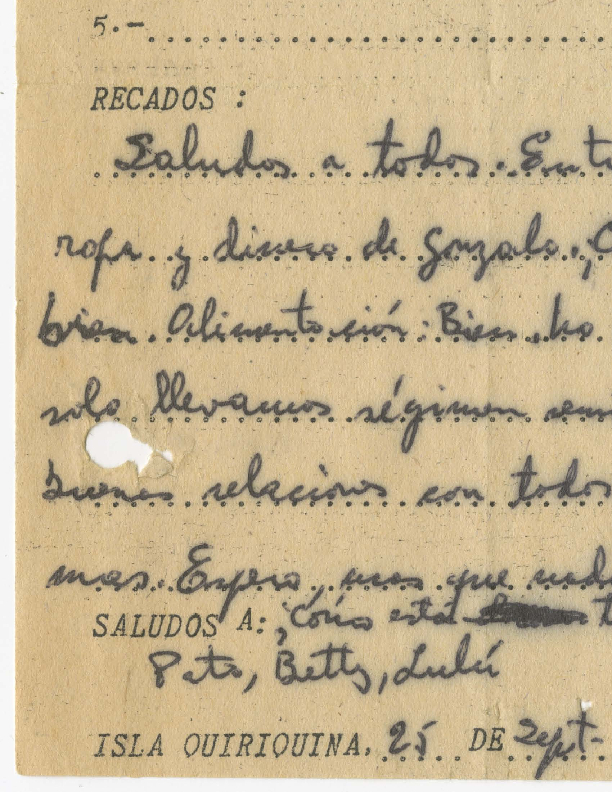 5.-
RECADOS :
Saludos a todos. Ent
ropa y dinero de Gonzalo,
bien. Alimentación: Bien, ho
solo llevamos régimen
buenas relaciones con todos
mas. Espero, mas que nad
SALUDOS A: ¿Cómo está
Pato, Betty, Lulú
ISLA QUIRIQUINA, 25 DE Sept-